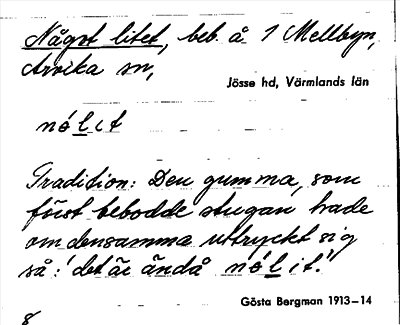 Något litet, beb. å 1 Mellbyn,
Arvika sn,
Jösse hd, Värmlands län
nólit
Tradition: Den gumma, som
först bebodde stugan hade
om densamma uttryckt sig
så: 'det är ändå nólit.'
Gösta Bergman 1913–14
8